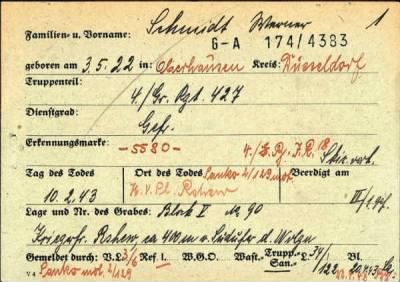 1
Familien- u. Vorname: Schmidt Werner
G-A 174/4383
geboren am 3.5.22 in Oberhausen Kreis: Düsseldorf
Truppenteil: 4./Gr. Rgt. 427
Dienstgrad: Gef.
Erkennungsmarke: -5580- 4./
Tag des Todes Ort des Todes Sanko 2/129 mot. Beerdigt am
10.2.43 H.V.Pl. Rshew
Lage und Nr. des Grabes: Block V Nr. 90
Kriegerfr. Rshew, ca 400 m v. Südufer d. Wolga
Gemeldet durch: V.L. 3/6 Ref. W.G.O. Wast.- Trupp.- San.- L 34/122
V 4 Sanko mot. 2/129